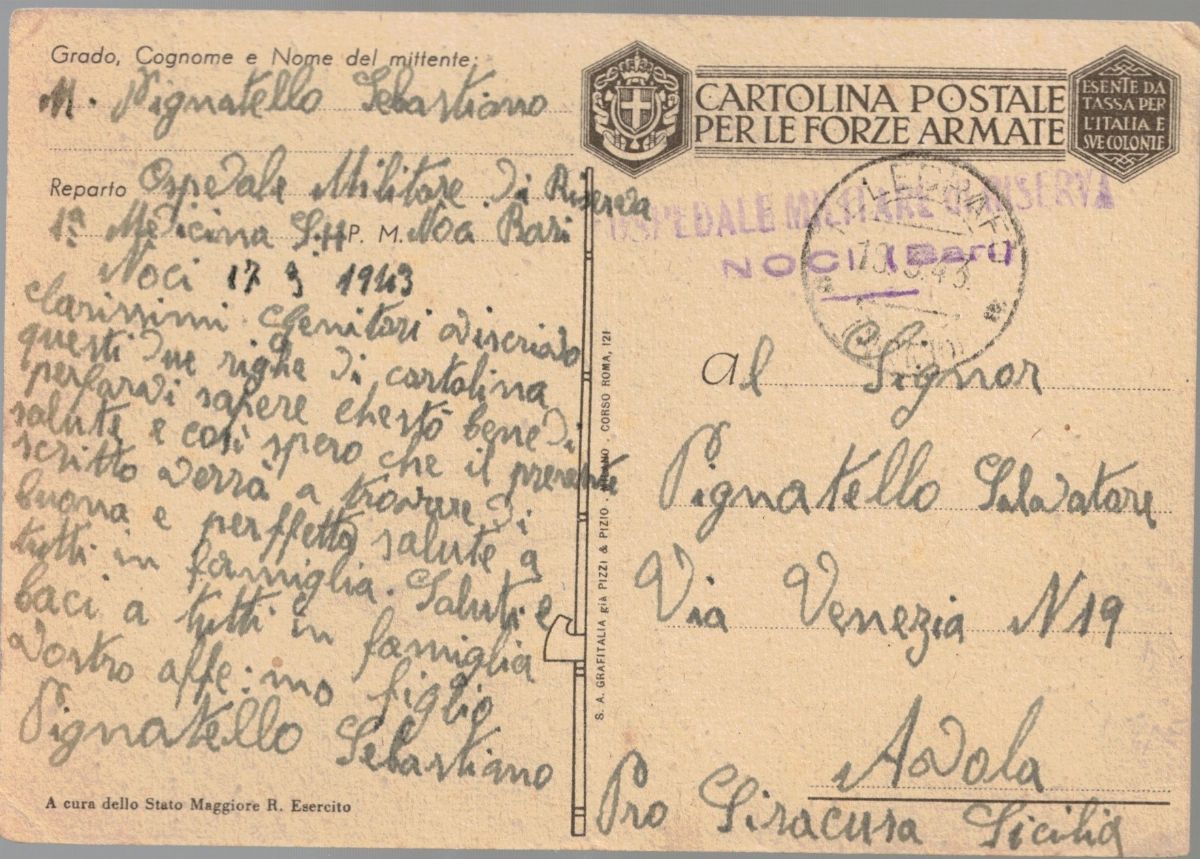 Grado, Cognome e Nome del mittente:
M. Pignatello Sebastiano
Reparto Ospedale Militare di Riserva
1ª Medicina P. M. Noa Bari
Noci 17 3 1943
Carissimi Genitori viscrivo
questi due righe di cartolina
perfarvi sapere chestò bene di
salute e così spero che il presente
scritto verrà a trovare di
buona e perffetta salute a
tutti in famiglia. Saluti e
baci a tutti in famiglia
vostro affe:mo figlio
Pignatello Sebastiano
A cura dello Stato Maggiore R. Esercito
S. A. GRAFITALIA già PIZZI & PIZIO - MILANO - CORSO ROMA, 121
CARTOLINA POSTALE
PER LE FORZE ARMATE
ESENTE DA
TASSA PER
L'ITALIA E
SVE COLONIE
OSPEDALE MILITARE RISERVA
NOCI (Bari)
al Signor
Pignatello Salvatore
Via Venezia N 19
Avola
Pro Siracusa Sicilia